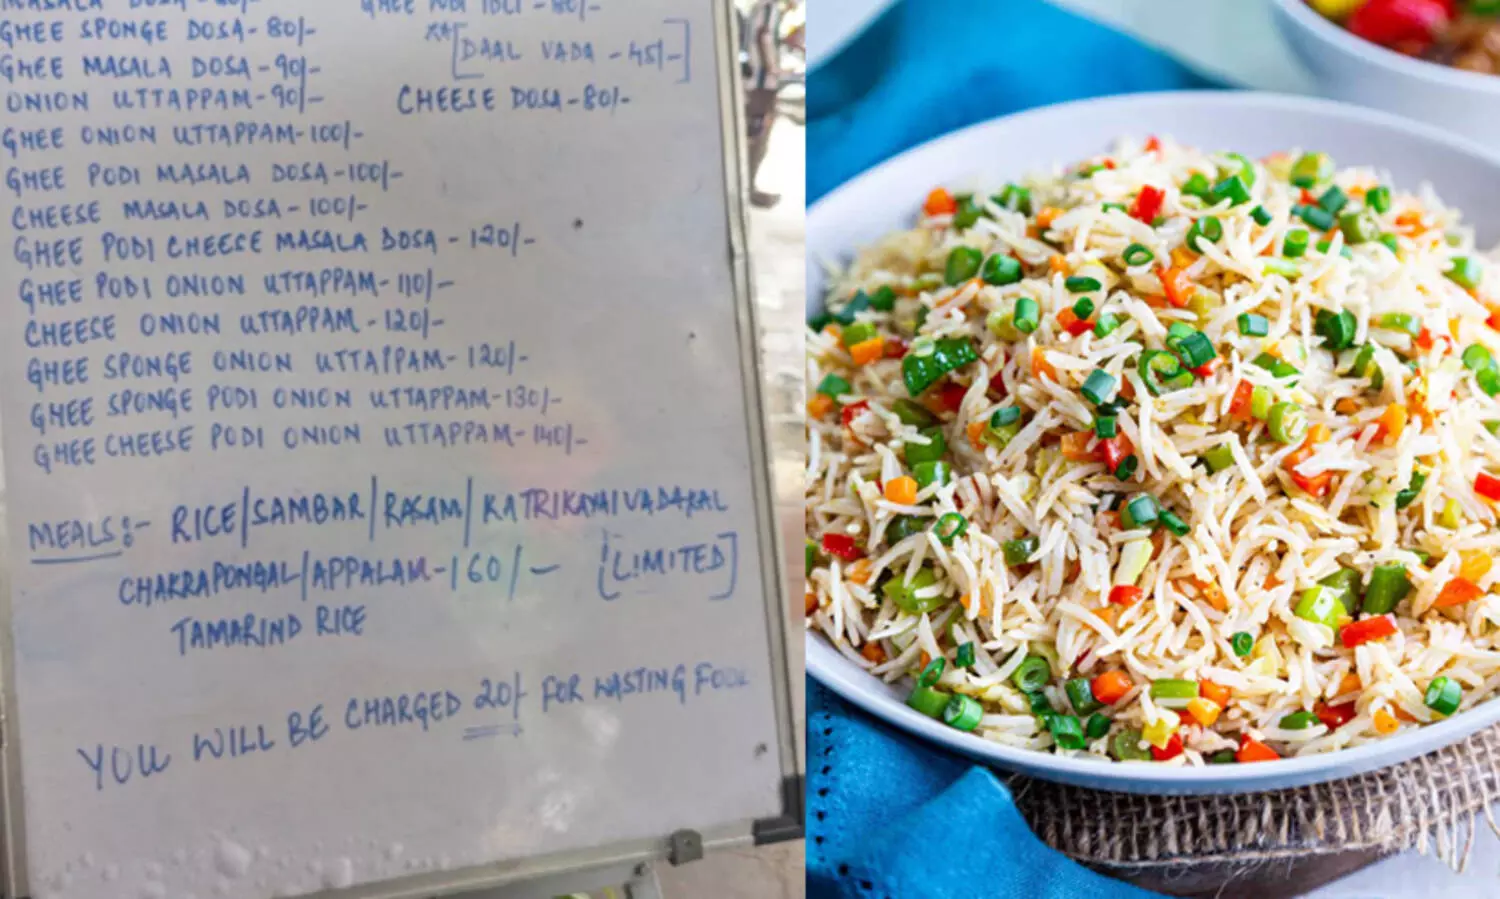 MASALA DOSA-80/-
GHEE SPONGE DOSA-80/-
GHEE MASALA DOSA-90/-
ONION UTTAPPAM-90/-
GHEE ONION UTTAPPAM-100/-
GHEE PODI MASALA DOSA-100/-
CHEESE MASALA DOSA-100/-
GHEE PODI CHEESE MASALA DOSA - 120/-
GHEE PODI ONION UTTAPPAM- 110/-
CHEESE ONION UTTAPPAM - 120/-
GHEE SPONGE ONION UTTAPPAM- 120/-
GHEE SPONGE PODI ONION UTTAPPAM-130/-
GHEE CHEESE PODI ONION UTTAPPAM-140/-
GHEE PODI IDLI -80/-
[DAAL VADA - 45/-]
CHEESE DOSA-80/-
MEALS:- RICE/SAMBAR/RASAM/KATRIKAYAIVADAKAL
CHAKRAPONGAL/APPALAM-160/- [LIMITED]
TAMARIND RICE
YOU WILL BE CHARGED 20/- FOR WASTING FOOD